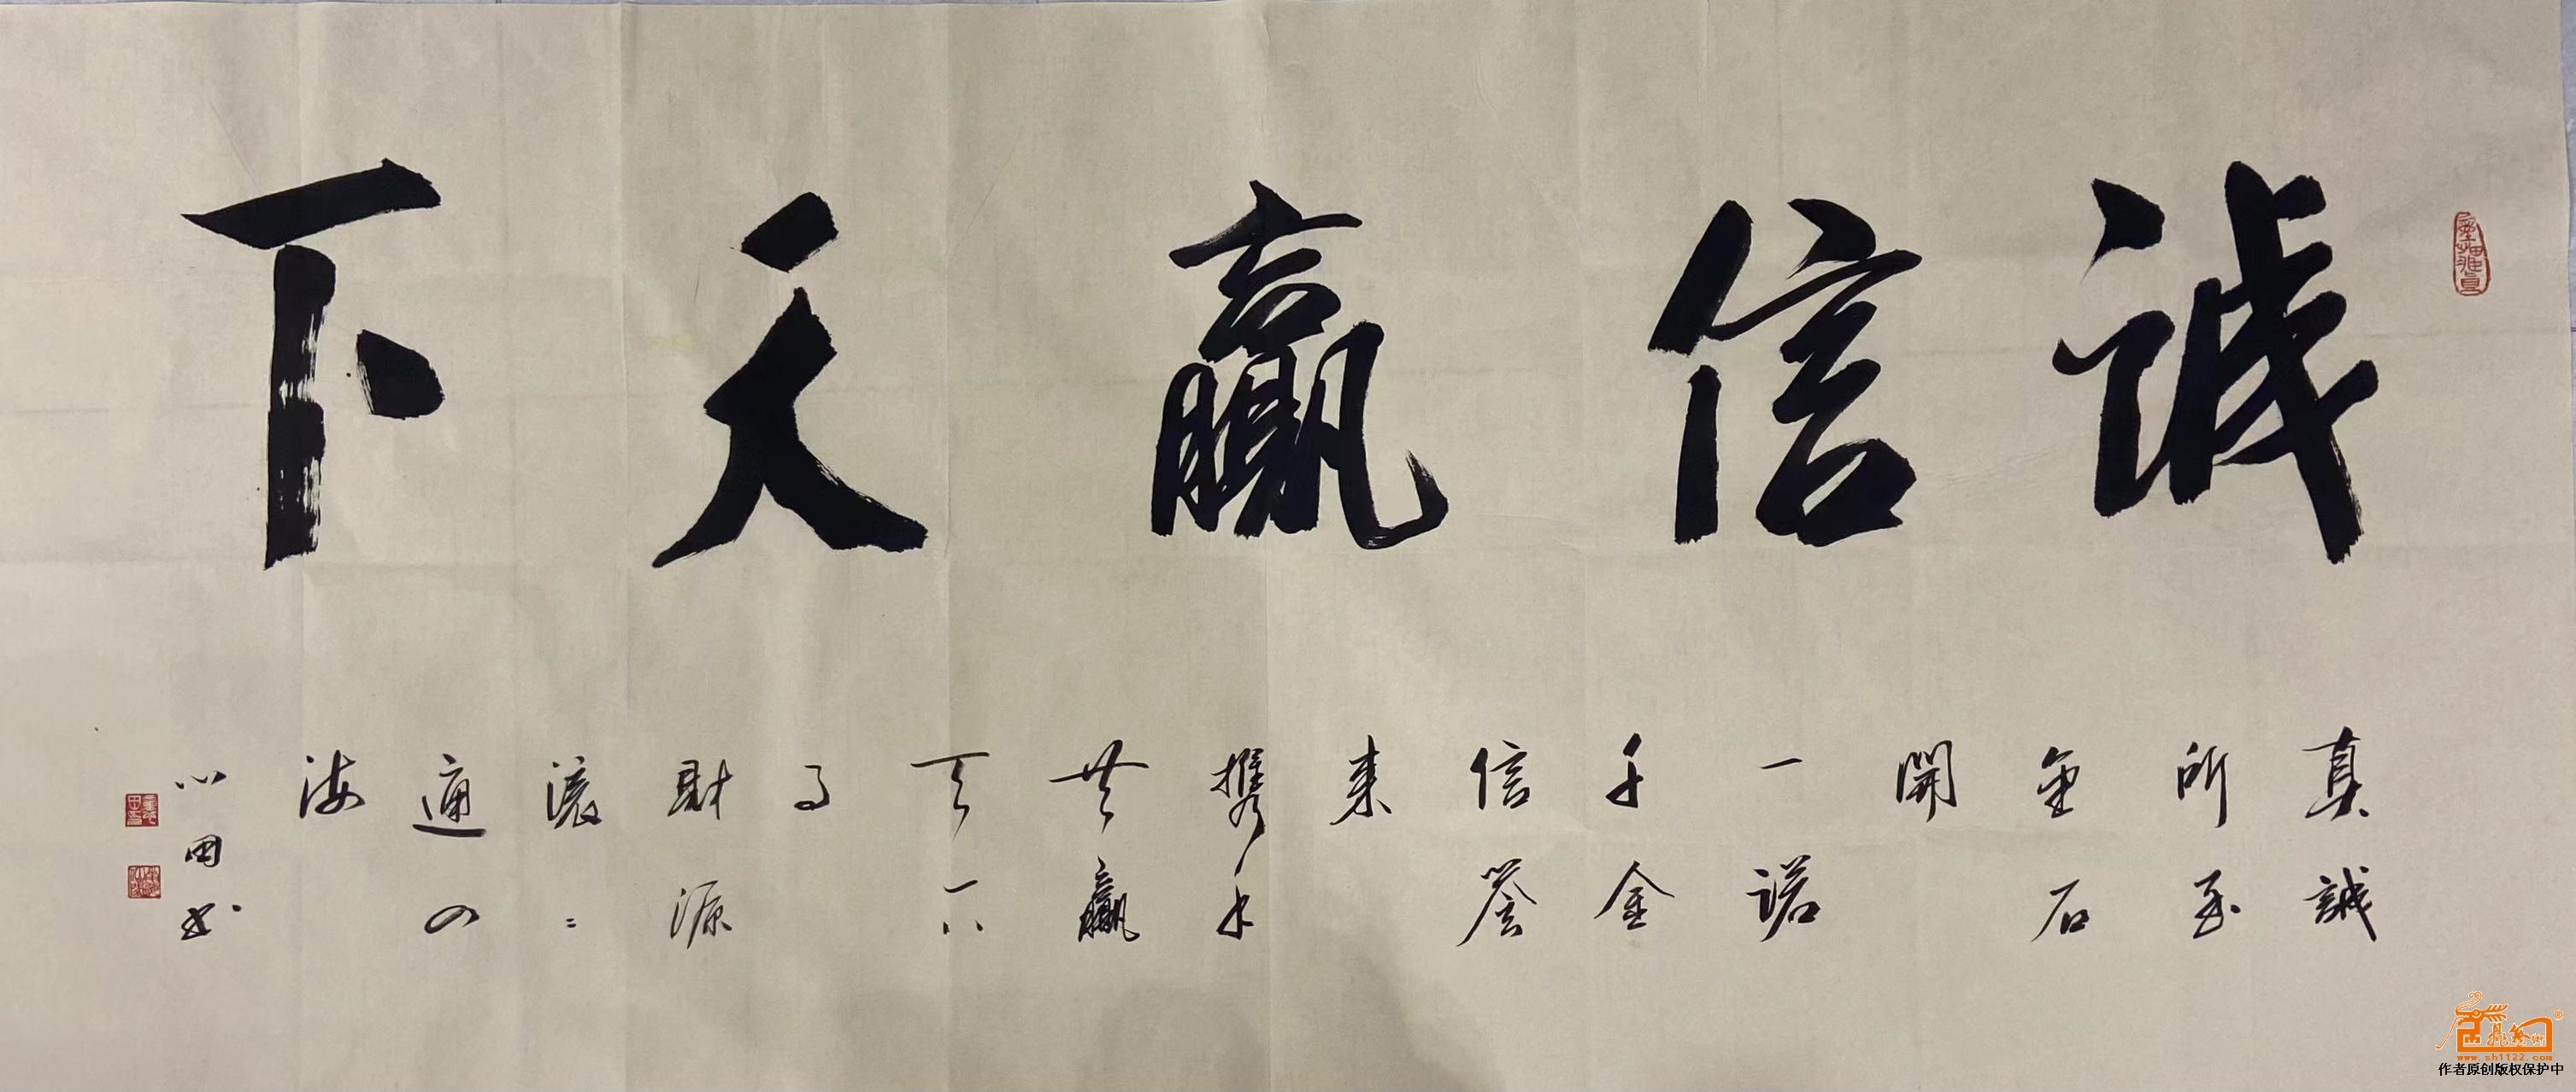 誠信贏天下
真誠
所至
金石
開
一諾
千金
信譽
來
攜手
共贏
天下
事
財源
滾〻
通四
海
心田书
www.sh1122.com
作者原创版权保护中